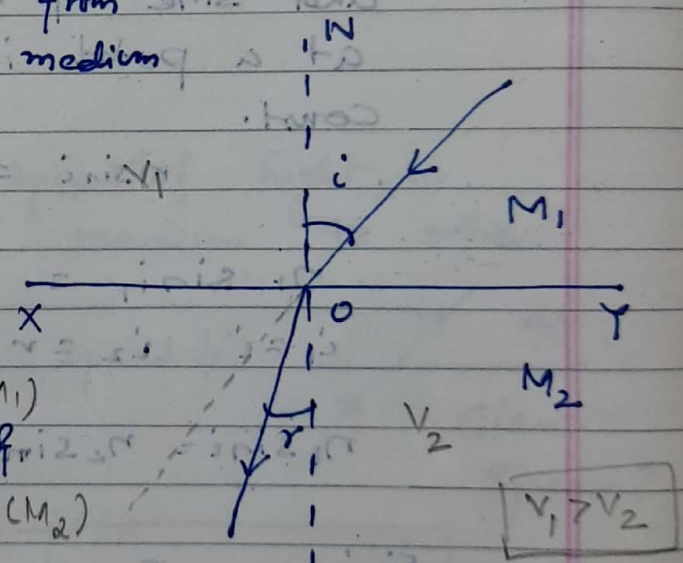 from
medium
N
i
M₁
X
O
Y
M₁)
M₂
r
V₂
(M₂)
V₁ > V₂